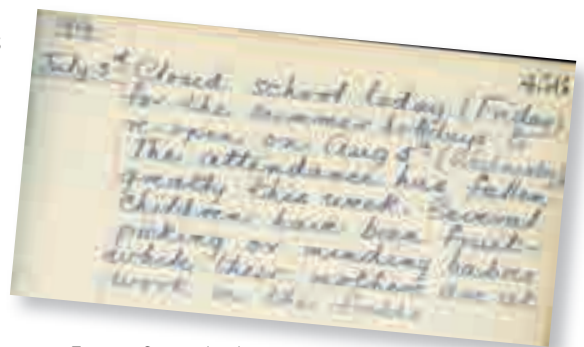 July 3rd Closed school today (Friday)
for the summer holidays to
re-open on Aug 5th
The attendance has fallen
greatly this week. Several
children have been fruit-
picking or minding babies
while their mothers are at
work in the fields